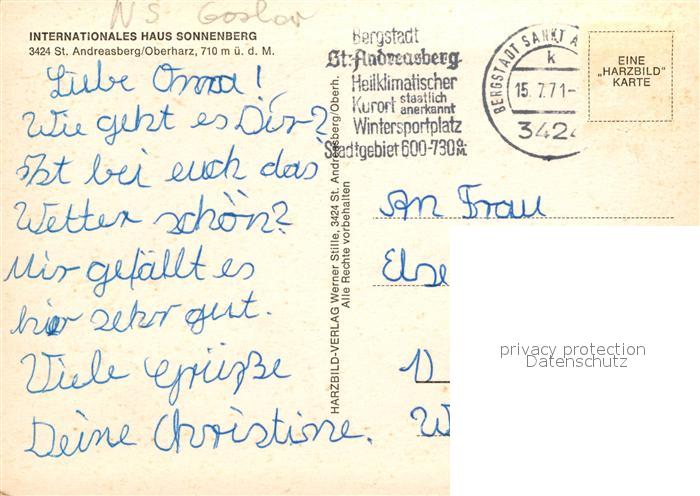 NS Goslar
INTERNATIONALES HAUS SONNENBERG
3424 St. Andreasberg/Oberharz, 710 m ü. d. M.
Liebe Oma!
Wie geht es Dir?
Ist bei euch das
Wetter schön?
Mir gefällt es
hier sehr gut.
Viele Grüße
Deine Christine.
HARZBILD-VERLAG Werner Stille, 3424 St. Andreasberg/Oberh.
Alle Rechte vorbehalten
Bergstadt
St. Andreasberg
Heilklimatischer
Kurort staatlich anerkannt
Wintersportplatz
Stadtgebiet 600-730 ü. M.
BERGSTADT SANKT A
k
15.7.71-
3424
EINE
„HARZBILD"
KARTE
An Frau
Else
1)
W
privacy protection
Datenschutz